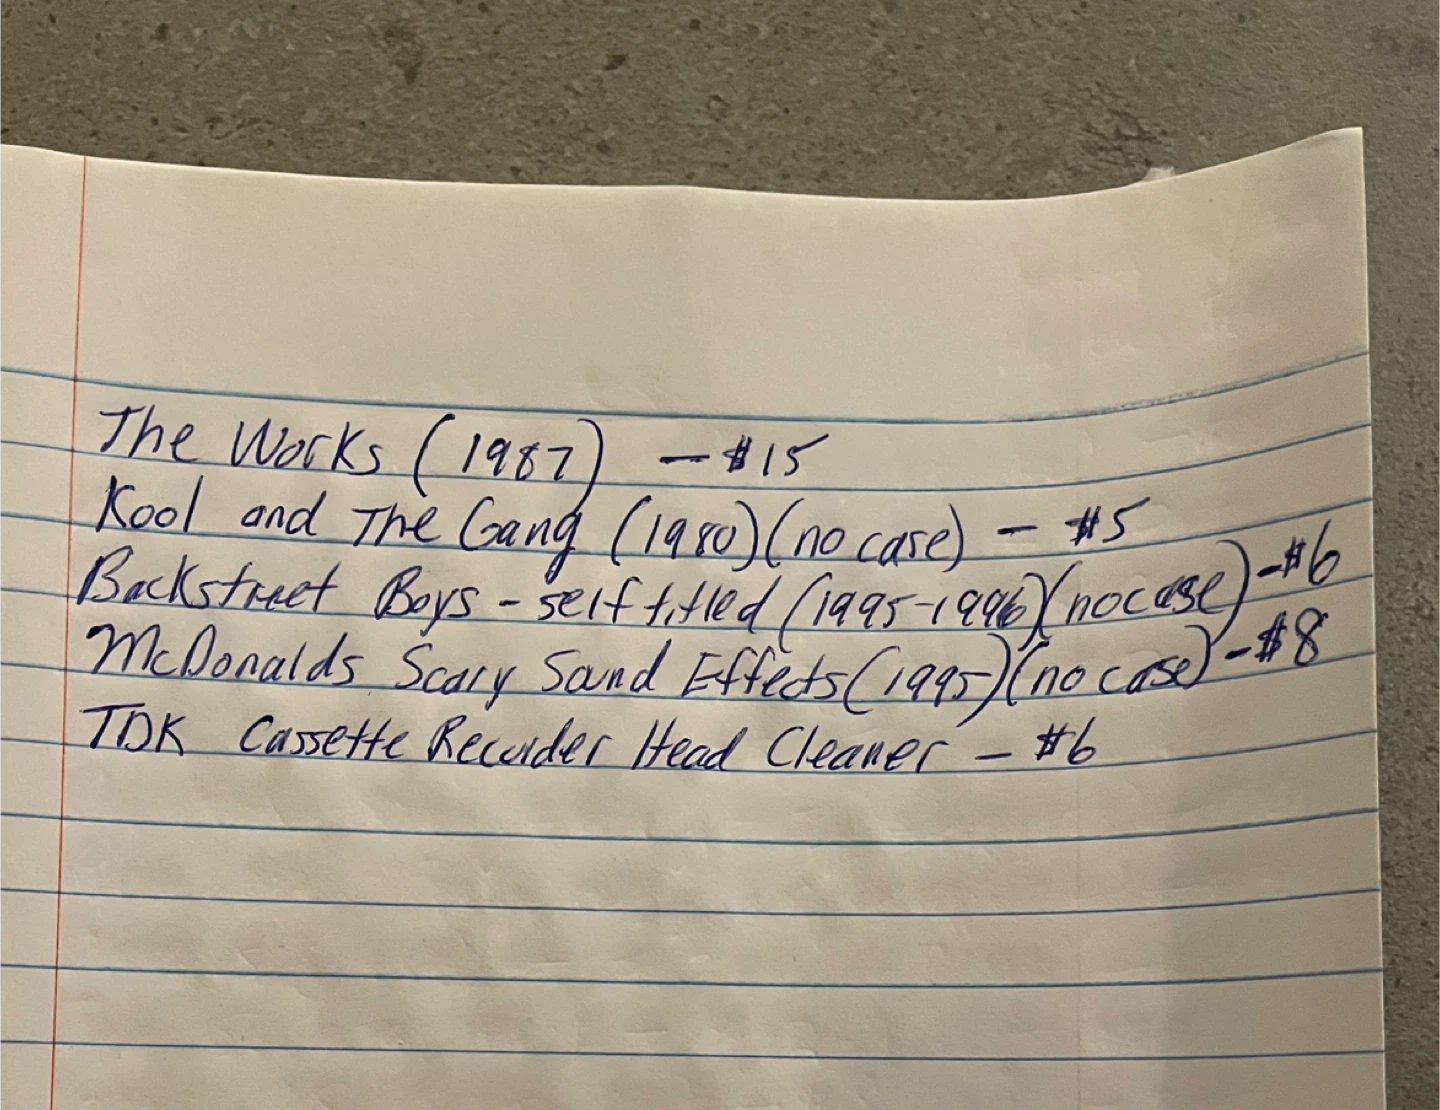 The Works (1987) - $15
Kool and The Gang (1980)(no case) - $5
Backstreet Boys - self titled (1995-1996)(no case) - $6
McDonalds Scary Sound Effects (1995)(no case) - $8
TDK Cassette Recorder Head Cleaner - $6